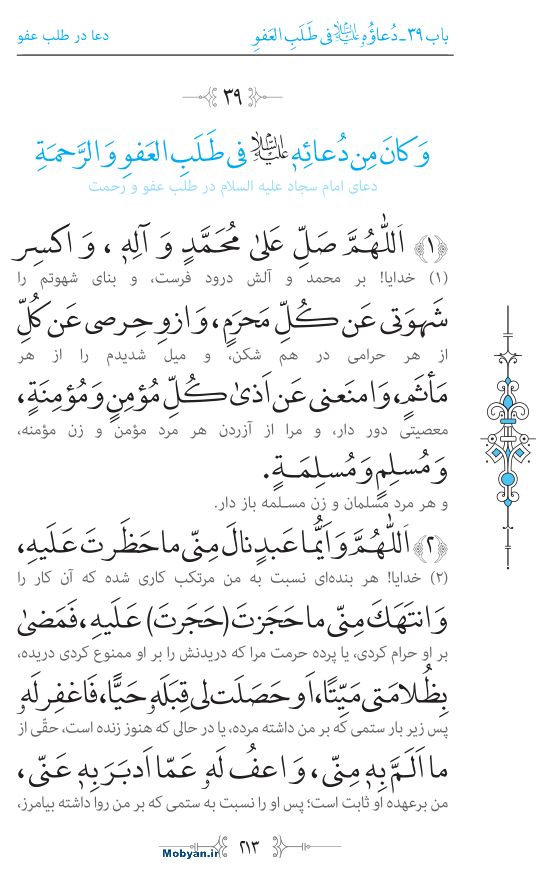 باب ۳۹ـ دُعاؤُهُ عليه‌السلام فی طَلَبِ العَفوِ
دعا در طلب عفو
۳۹
وَ کانَ مِن دُعائِهٖ عليه‌السلام فی طَلَبِ العَفوِ وَ الرَّحمَةِ
دعای امام سجاد علیه السلام در طلب عفو و رحمت
﴿۱﴾ اَللّٰهُمَّ صَلِّ عَلیٰ مُحَمَّدٍ وَ آلِهٖ ، وَ اکسِر
(۱) خدایا! بر محمد و آلش درود فرست، و بنای شهوتم را
شَهوَتی عَن کُلِّ مَحرَمٍ، وَ ازوِ حِرصی عَن کُلِّ
از هر حرامی در هم شکن، و میل شدیدم را از هر
مَأثَمٍ، وَ امنَعنی عَن اَذیٰ کُلِّ مُؤمِنٍ وَ مُؤمِنَةٍ،
معصیتی دور دار، و مرا از آزردن هر مرد مؤمن و زن مؤمنه،
وَ مُسلِمٍ وَ مُسلِمَةٍ.
و هر مرد مسلمان و زن مسلمه باز دار.
﴿۲﴾ اَللّٰهُمَّ وَ اَیُّما عَبدٍ نالَ مِنّی ما حَظَرتَ عَلَیهِ،
(۲) خدایا! هر بنده‌ای نسبت به من مرتکب کاری شده که آن کار را
وَ انتَهَكَ مِنّی ما حَجَزتَ (حَجَرتَ) عَلَیهِ، فَمَضیٰ
بر او حرام کردی، یا پرده حرمت مرا که دریدنش را بر او ممنوع کردی دریده،
بِظُلامَتی مَیِّتًا، اَو حَصَلَت لی قِبَلَهٗ حَیًّا، فَاغفِر لَهٗ
پس زیر بار ستمی که بر من داشته مرده، یا در حالی که هنوز زنده است، حقّی از
ما اَلَمَّ بِهٖ مِنّی، وَ اعفُ لَهٗ عَمّا اَدبَرَ بِهٖ عَنّی،
من برعهده او ثابت است؛ پس او را نسبت به ستمی که بر من روا داشته بیامرز،
۲۱۳
Mobyan.ir